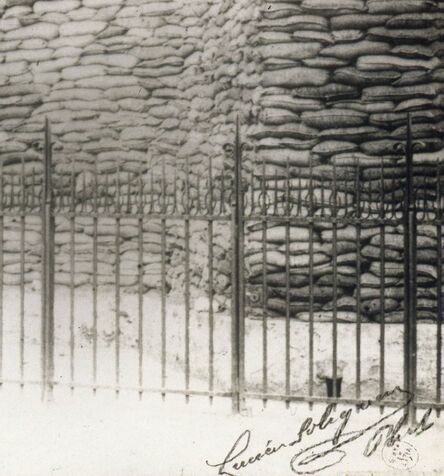 Lucien Solignac
Phot